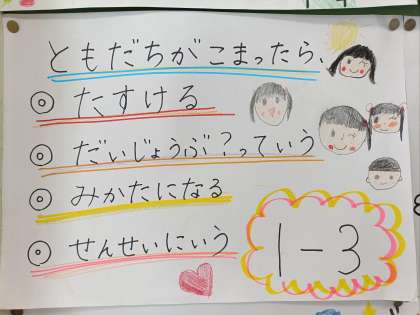 ともだちがこまったら、
◎ たすける
◎ だいじょうぶ?っていう
◎ みかたになる
◎ せんせいにいう
1-3